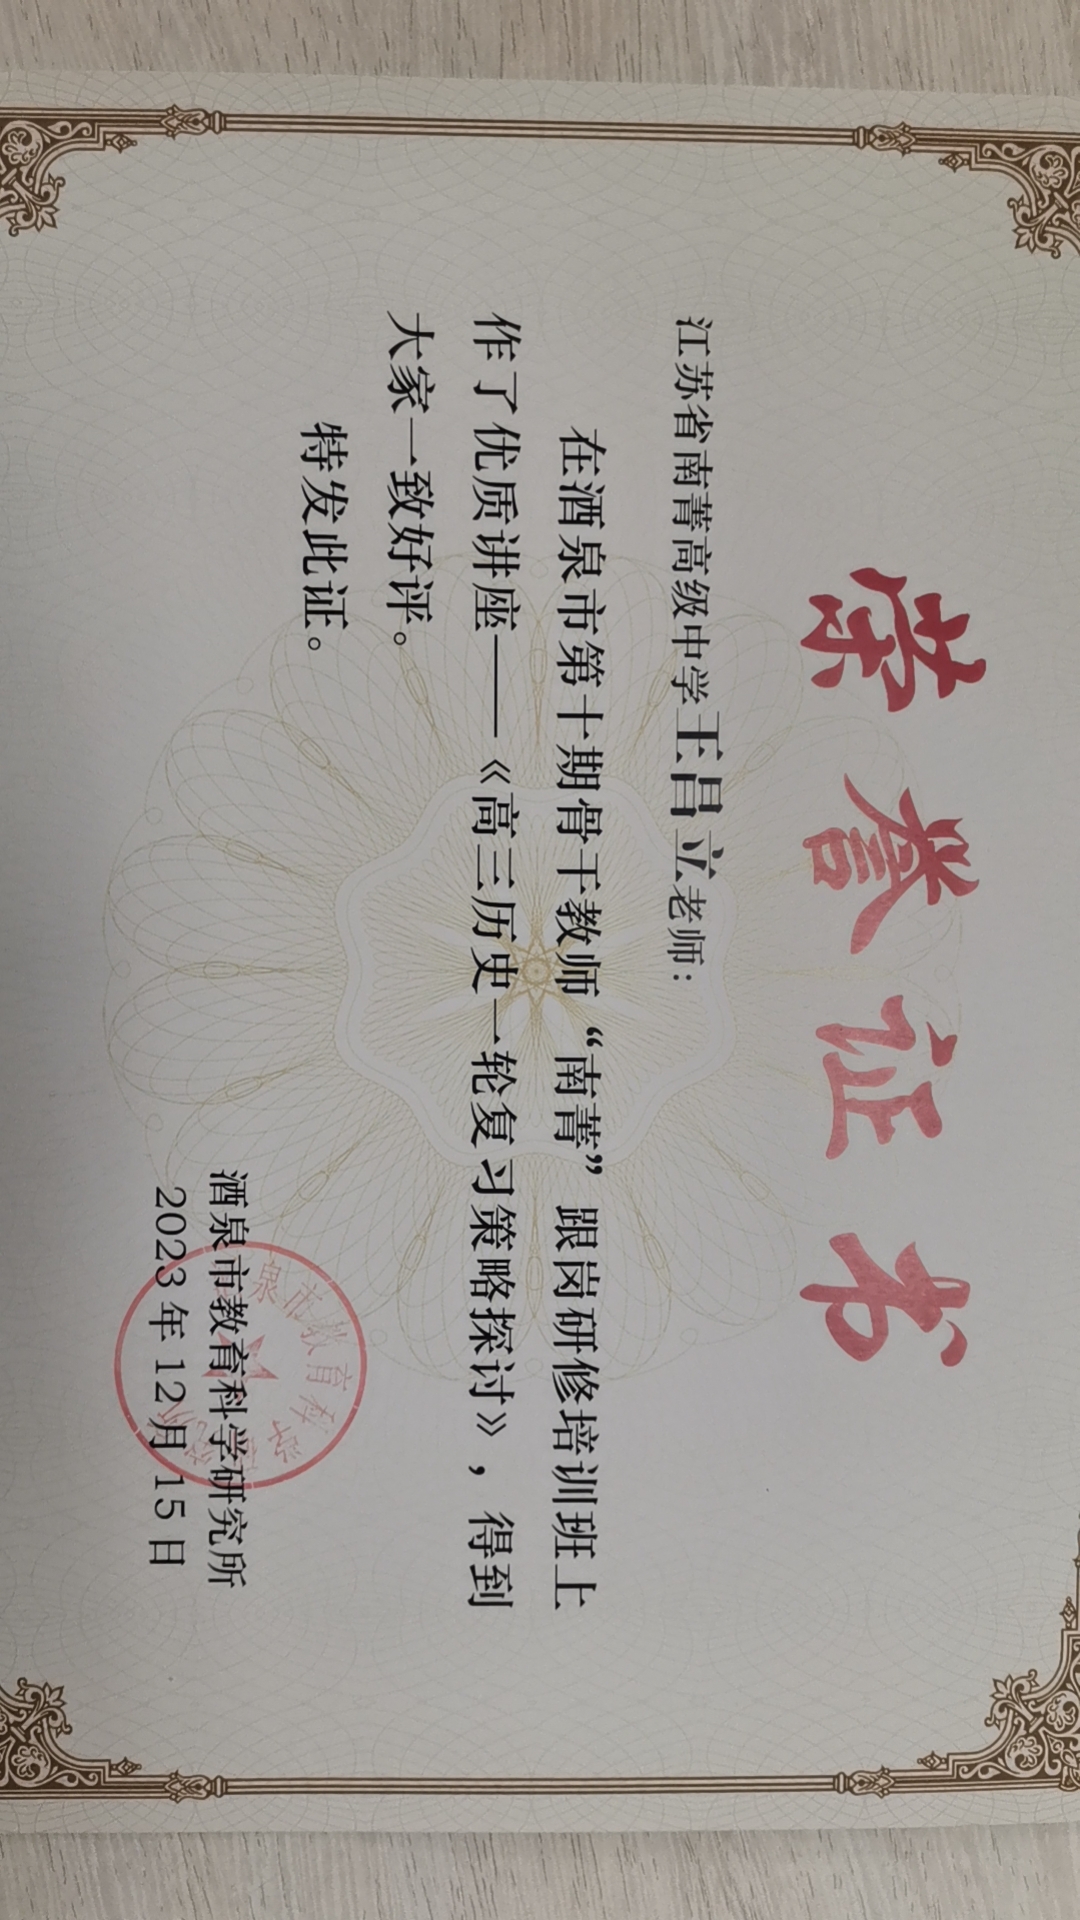 荣誉证书
江苏省南菁高级中学王昌立老师：
在酒泉市第十期骨干教师“南菁”跟岗研修培训班上
作了优质讲座——《高三历史一轮复习策略探讨》，得到
大家一致好评。
特发此证。
酒泉市教育科学研究所
2023年12月15日
泉市教育科学研究所